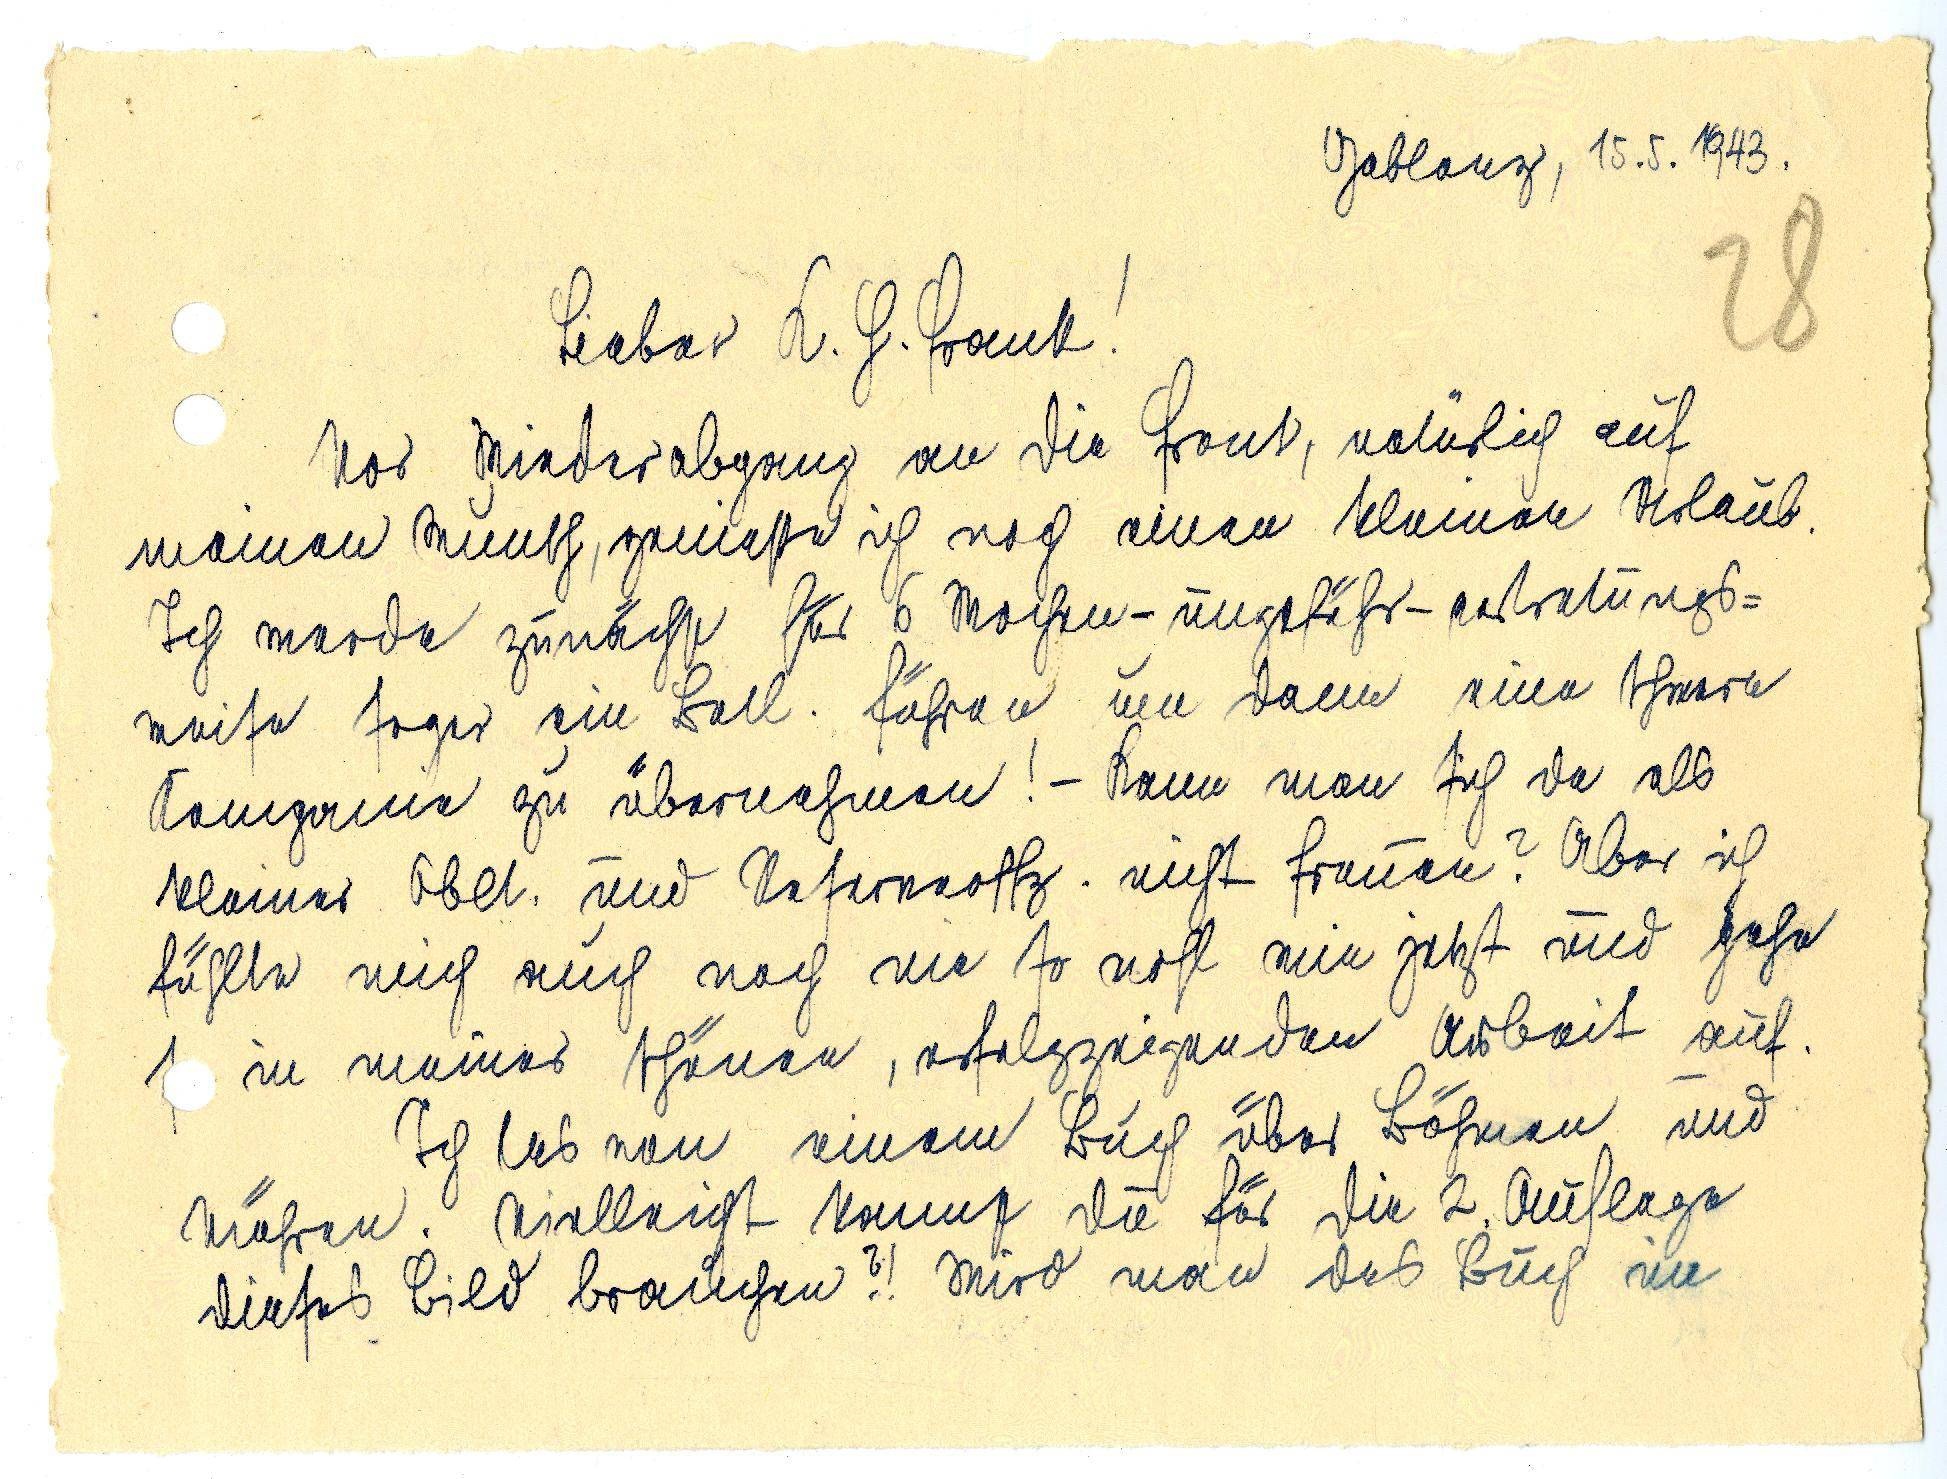 Gablonz, 15.5.1943.
28
Lieber K. H. Frank!
Vor Wiederabgang an die Front, natürlich auf
meinen Wunsch, genieße ich noch einen kleinen Urlaub.
Ich werde zunächst für 6 Wochen - ungefähr - vertretungs=
weise sogar ein Batl. führen um dann eine schwere
Kompanie zu übernehmen! - Kann man sich da als
kleiner Oblt. und Reserveoffz. nicht freuen? Aber ich
fühlte mich auch noch nie so wohl wie jetzt und gehe
so in meiner schönen, erfolgzeigenden Arbeit auf.
Ich las von einem Buch über Böhmen und
Mähren. Vielleicht kannst du für die 2. Auflage
dieses Bild brauchen?! Wird man das Buch im